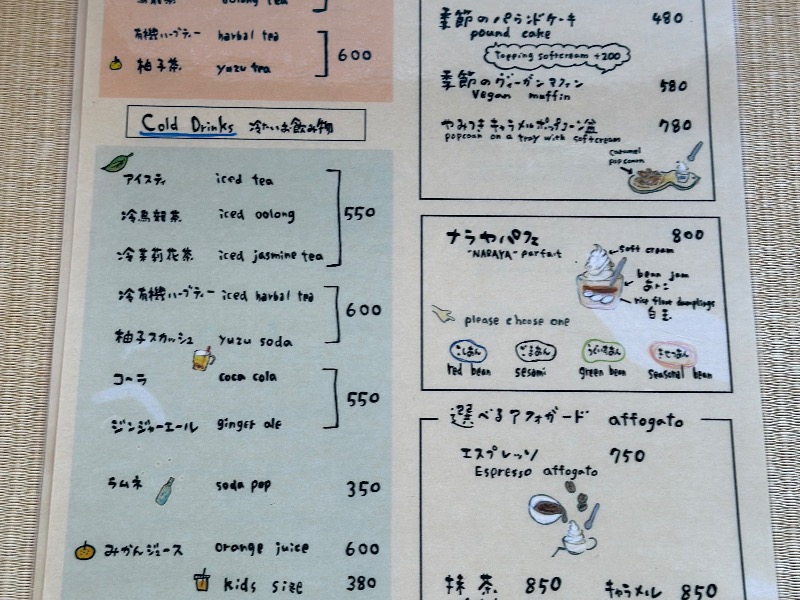 有機ハーブティー harbal tea
柚子茶 yuzu tea
600
Cold Drinks 冷たいお飲み物
アイスティ iced tea
冷烏龍茶 iced oolong
550
冷茉莉花茶 iced jasmine tea
冷有機ハーブティー iced harbal tea
600
柚子スカッシュ yuzu soda
コーラ coca cola
550
ジンジャーエール ginger ale
ラムネ soda pop 350
みかんジュース orange juice 600
kids size 380
季節のパウンドケーキ 480
pound cake
Topping softcream +200
季節のヴィーガンマフィン 580
Vegan muffin
やみつきキャラメルポップコーン盆 780
popcorn on a tray with softcream
caramel
popcorn
ナラヤパフェ 800
"NARAYA" parfait
soft cream
bean jam
あんこ
rice flour dumplings
白玉
please choose one
こしあん ごまあん うぐいすあん きせつあん
red bean sesami green bean seasonal bean
選べるアフォガード affogato
エスプレッソ 750
Espresso affogato
抹茶 850 キャラメル 850